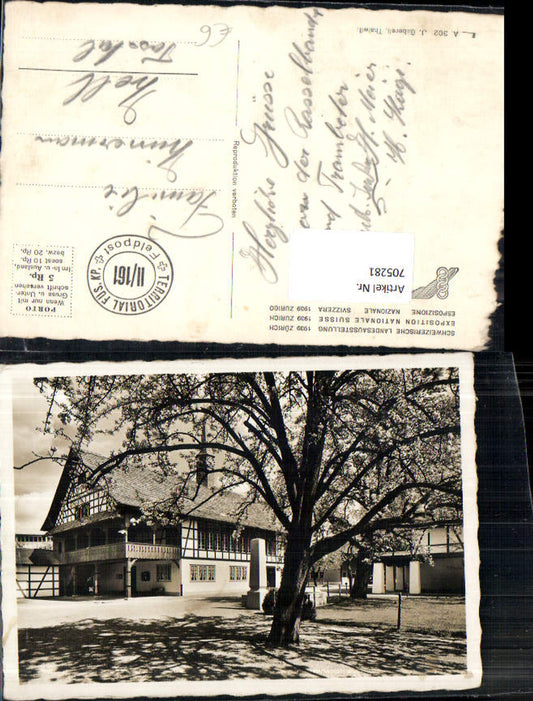 A 302 J. Gaberell, Thalwil.
SCHWEIZERISCHE LANDESAUSSTELLUNG 1939 ZÜRICH
EXPOSITION NATIONALE SUISSE 1939 ZURICH
ESPOSIZIONE NAZIONALE SVIZZERA 1939 ZURIGO
Artikel Nr.
705281
Reproduktion verboten
Herzliche Grüsse
von der Rasselbande
und
H. Meier
Familie
Zimmerman
Zell
Tösstal
PORTO
Wenn nur mit
Gruss u. Unter-
schrift versehen
5 Rp.
Im In- u. Ausland,
sonst 10 Rp.
bezw. 20 Rp.
TERRITORIAL FÜS. KP.
II/161
Feldpost
€6